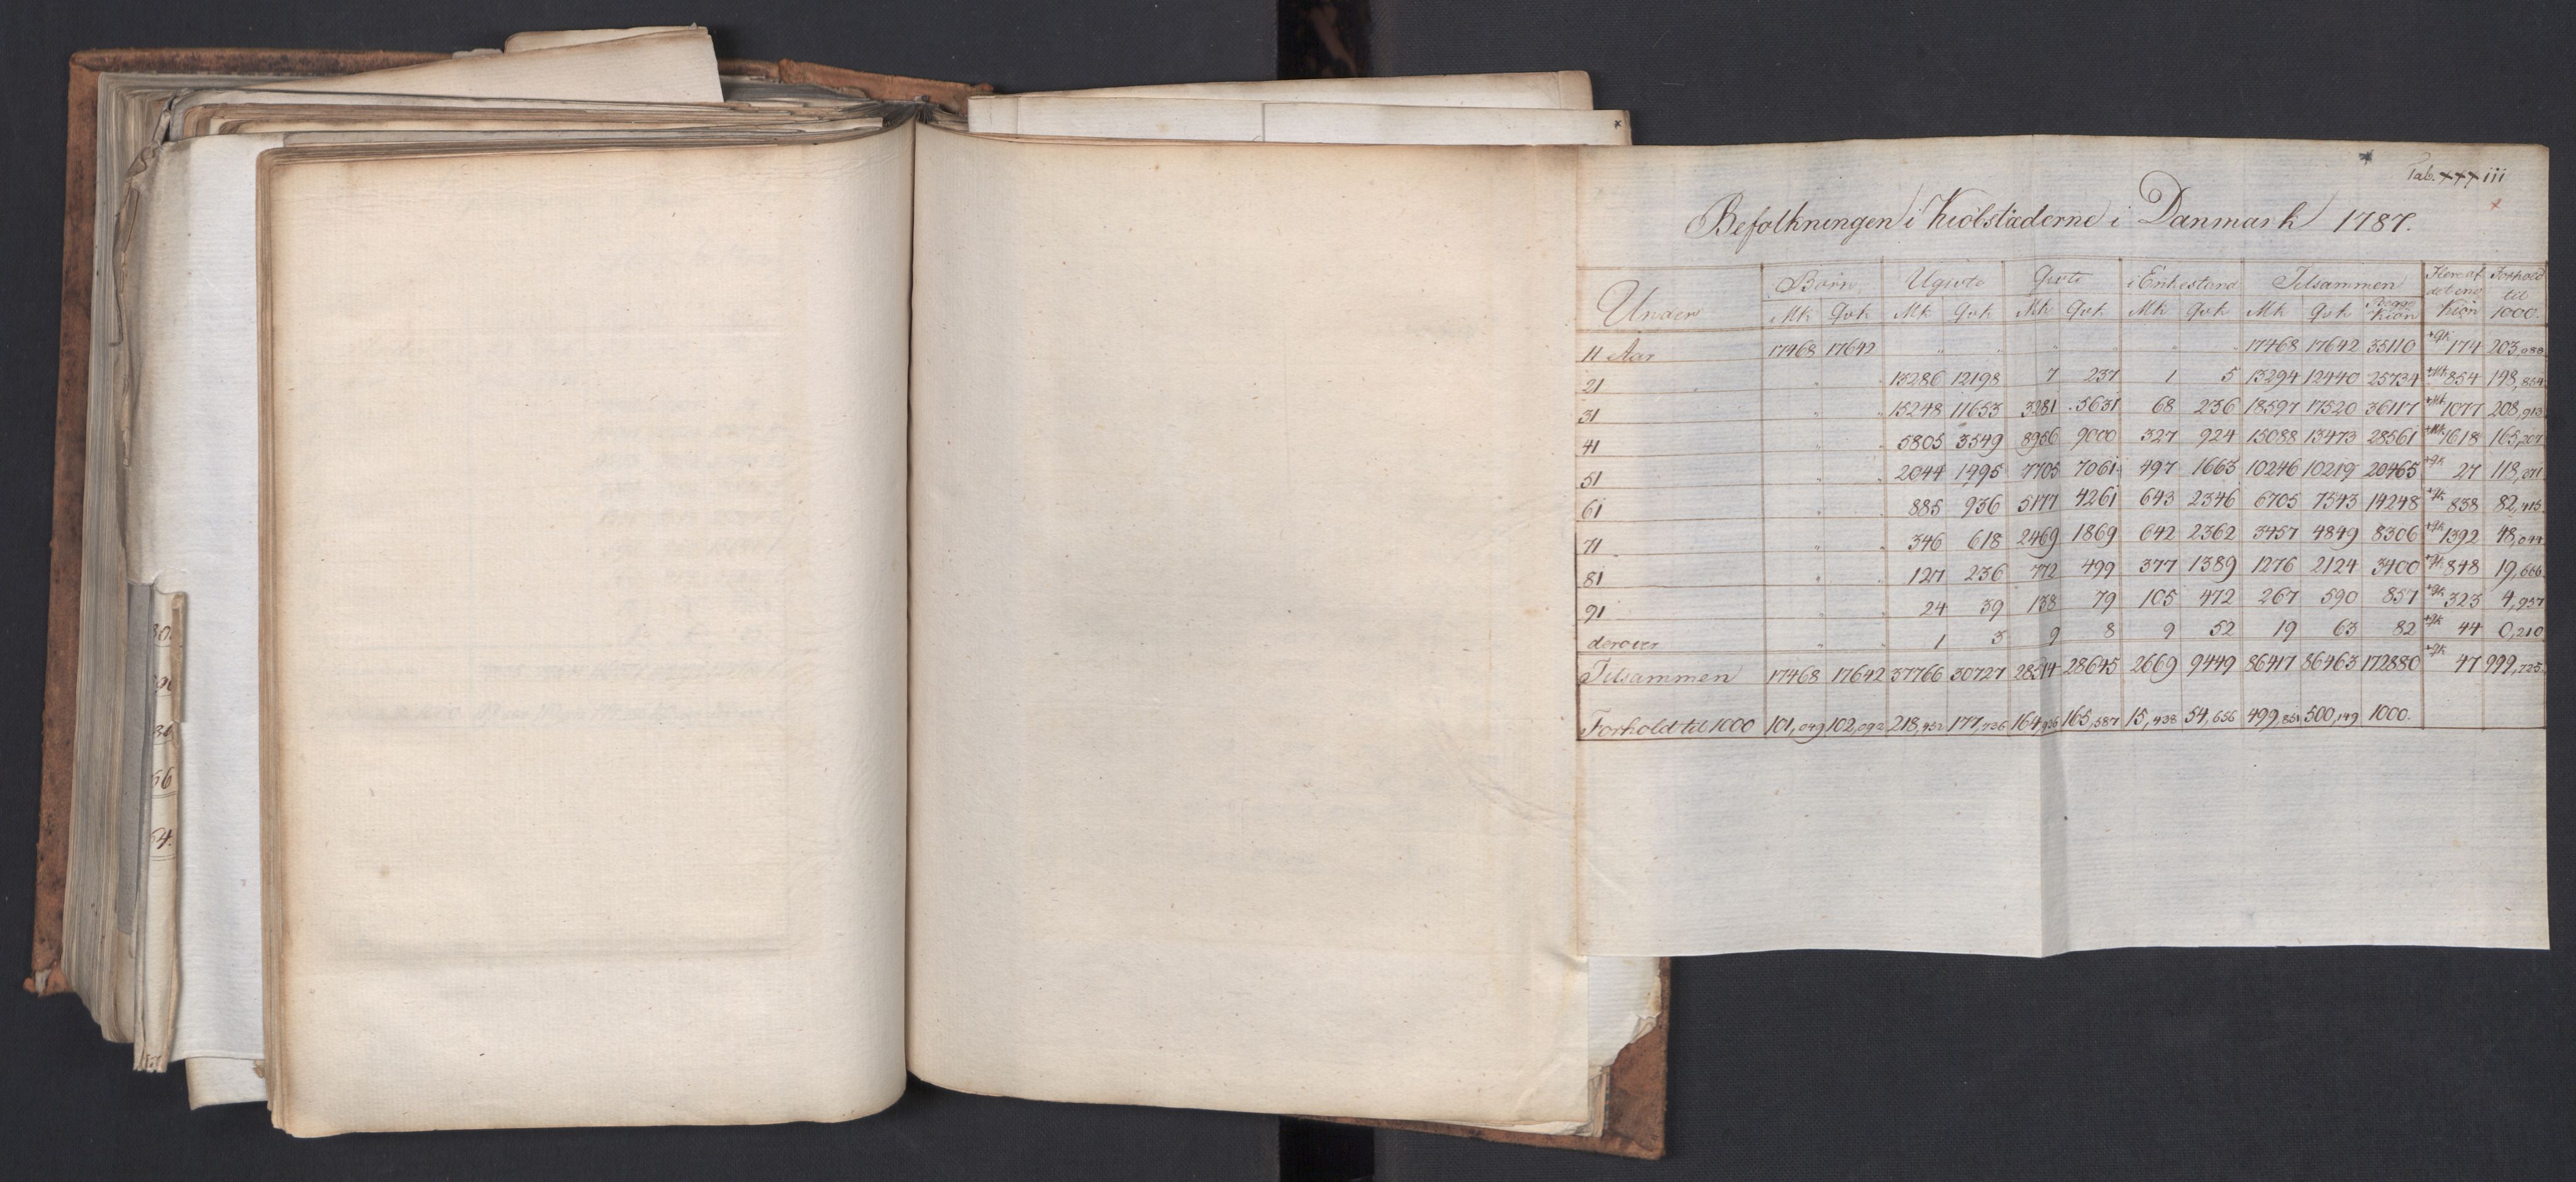 Tab. XXXiii
Befolkningen i Kiøbstæderne i Danmark 1787.
Under | Børn | Ugivte | Givte | i Enkestand | Tilsammen | Flere af det ene Kiøn | Forhold til 1000.
Mk Qvk | Mk Qvk | Mk Qvk | Mk Qvk | Mk Qvk Begge Kiøn
11 Aar 17468 17642 " " " " " " 17468 17642 35110 +Qk 174 203,088
21 " " 13286 12198 7 237 1 5 13294 12440 25734 +Mk 854 148,854
31 " " 15248 11653 3281 5631 68 236 18597 17520 36117 +Mk 1077 208,913
41 " " 5805 3549 8956 9000 327 924 15088 13473 28561 +Mk 1618 165,207
51 " " 2044 1495 7705 7061 497 1663 10246 10219 20465 +Qk 27 118,071
61 " " 885 936 5177 4261 643 2346 6705 7543 14248 +Qk 838 82,415
71 " " 346 618 2469 1869 642 2362 3457 4849 8306 +Qk 1392 48,044
81 " " 127 236 772 499 377 1389 1276 2124 3400 +Qk 848 19,666
91 " " 24 39 138 79 105 472 267 590 857 +Qk 323 4,957
derover " " 1 3 9 8 9 52 19 63 82 +Qk 44 0,210
Tilsammen 17468 17642 37766 30727 28514 28645 2669 9449 86417 86463 172880 +Qk 47 999,725
Forhold til 1000 101,049 102,092 218,452 177,736 164,936 165,587 15,438 54,656 499,851 500,149 1000.
30
56
4.